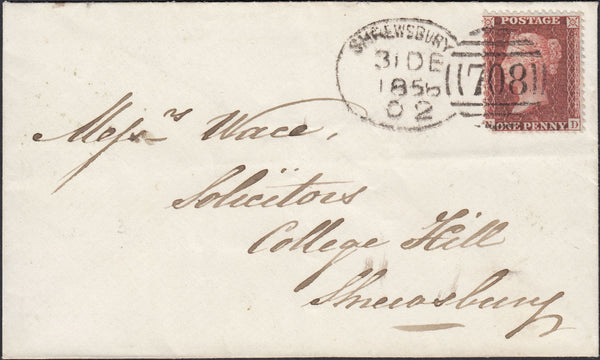 SHREWSBURY
31 DE
1856
D 2
708
POSTAGE
ONE PENNY
D
Mess.rs Wace,
Solicitors
College Hill
Shrewsbury